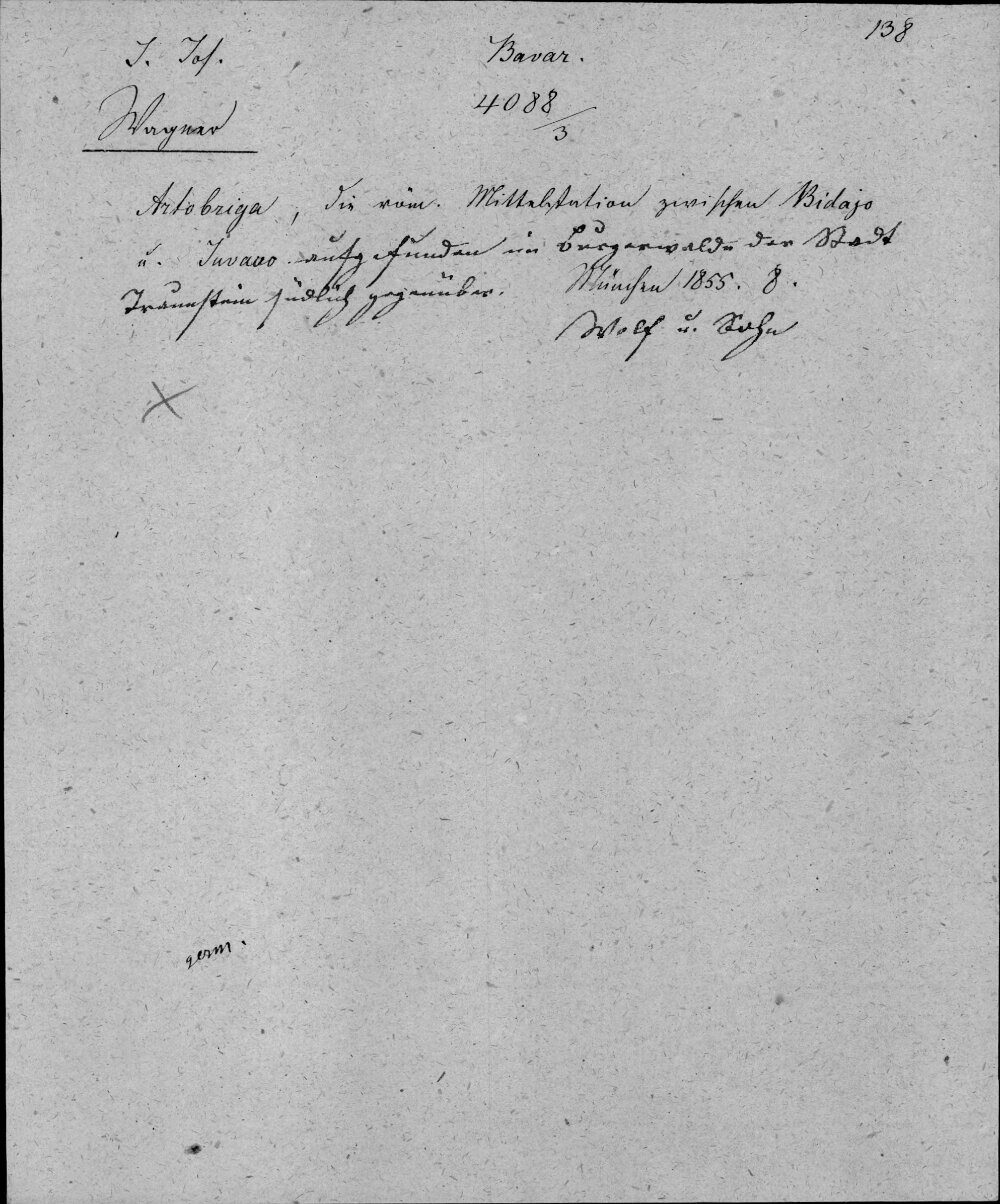 138
J. Jos.
Bavar.
Wagner
4088/3
Artobriga, die röm. Mittelstation zwischen Bidajo
u. Juvavo aufgefunden im Bürgerwalde der Stadt
Traunstein südlich gegenüber. München 1855. 8.
Wolf u. Sohn
germ.